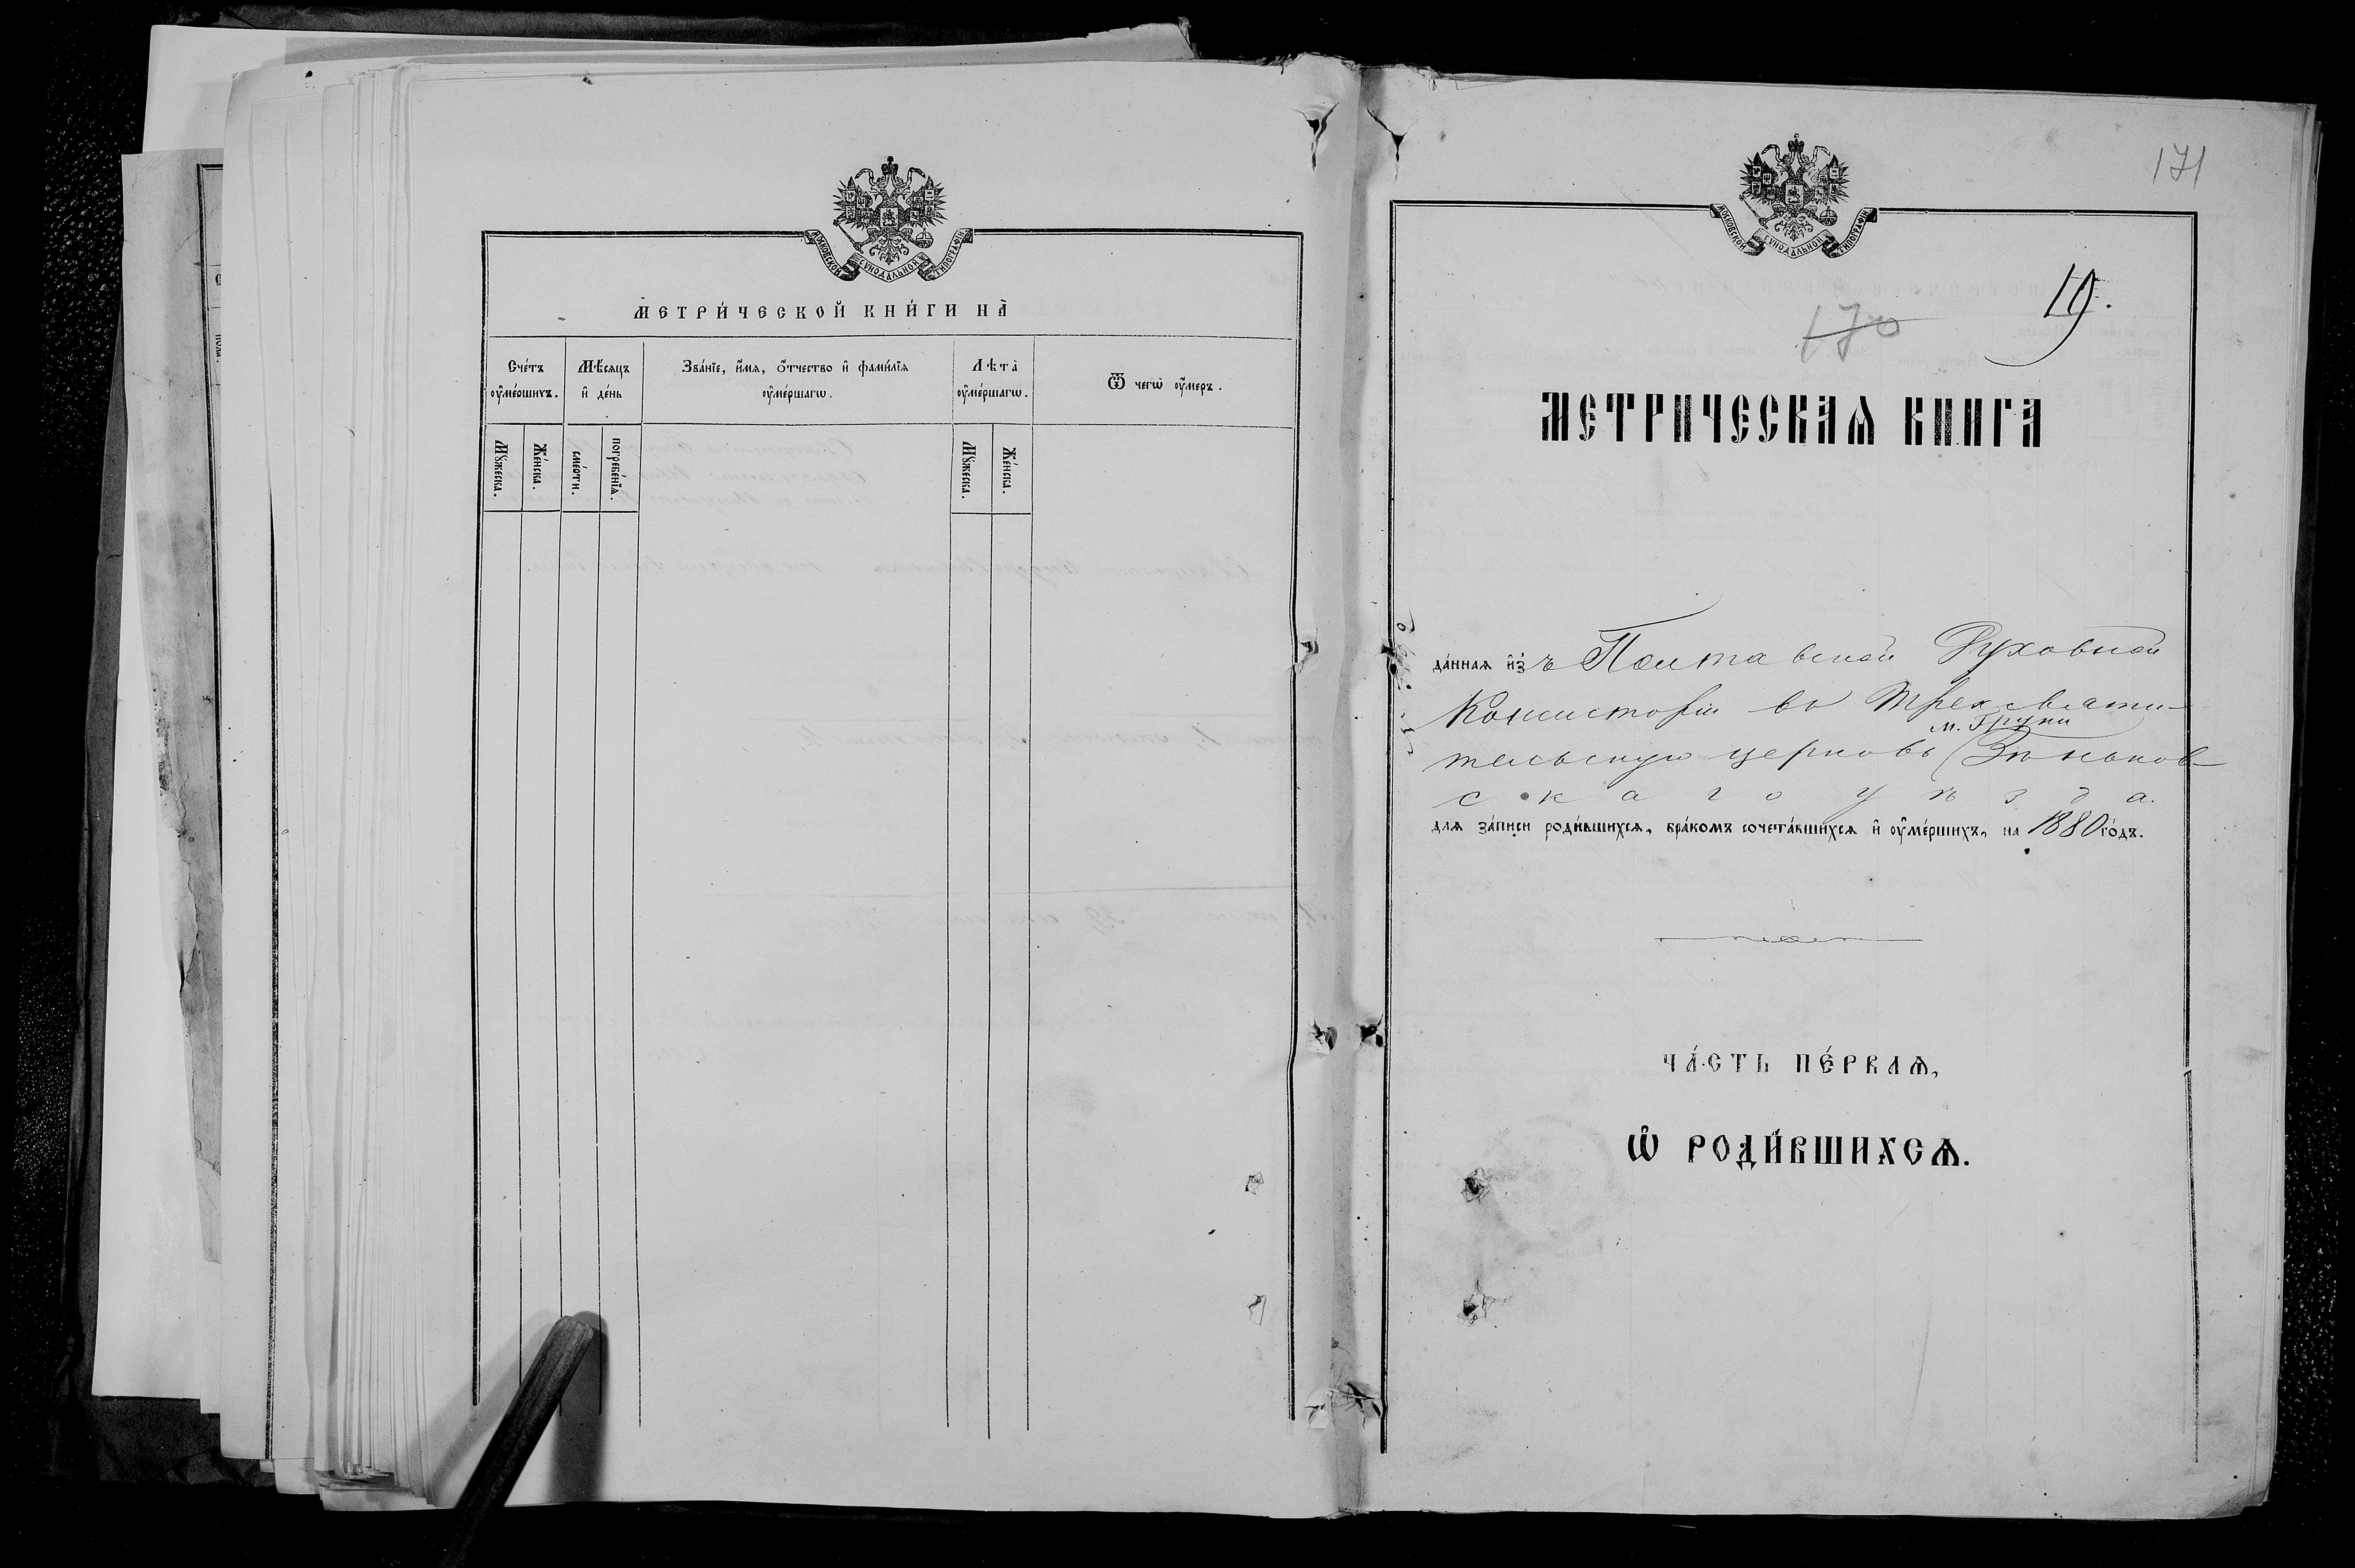 МОСКОВСКОЙ СѴНОДАЛЬНОЙ ТИПОГРАФІИ
МЕТРИ́ЧЕСКОЙ КНИ́ГИ НА̀
Сче́тъ ᲂу҆ме́ршихъ.
Мѣ́сяцъ и҆ де́нь
Зва́нїе, и҆́мѧ, ѻ҆́тчество и҆ фами́лїѧ ᲂу҆ме́ршагѡ.
Лѣ́та̀ ᲂу҆ме́ршагѡ.
Ѿ чегѡ̀ ᲂу҆́меръ.
Мꙋ́жеска.
Же́нска.
сме́рти.
погребе́нїѧ.
Мꙋ́жеска.
Же́нска.
171
МОСКОВСКОЙ СѴНОДАЛЬНОЙ ТИПОГРАФІИ
19.
170
МЕТРИЧЕСКАѦ КНИГА
да́ннаѧ и҆з̾ъ Полтавской Духовной
Консисторіи въ Трехсвяти-
м. Груни
тельскую церковь (Зѣньков-
скаго уѣзда.
длѧ за́писи роди́вшихсѧ, бра́комъ сочета́вшихсѧ и҆ ᲂу҆ме́ршихъ, на 1880 го́дъ.
ЧА́СТЬ ПЕ́РВАѦ,
Ѡ҆ РОДИ́ВШИХСѦ.